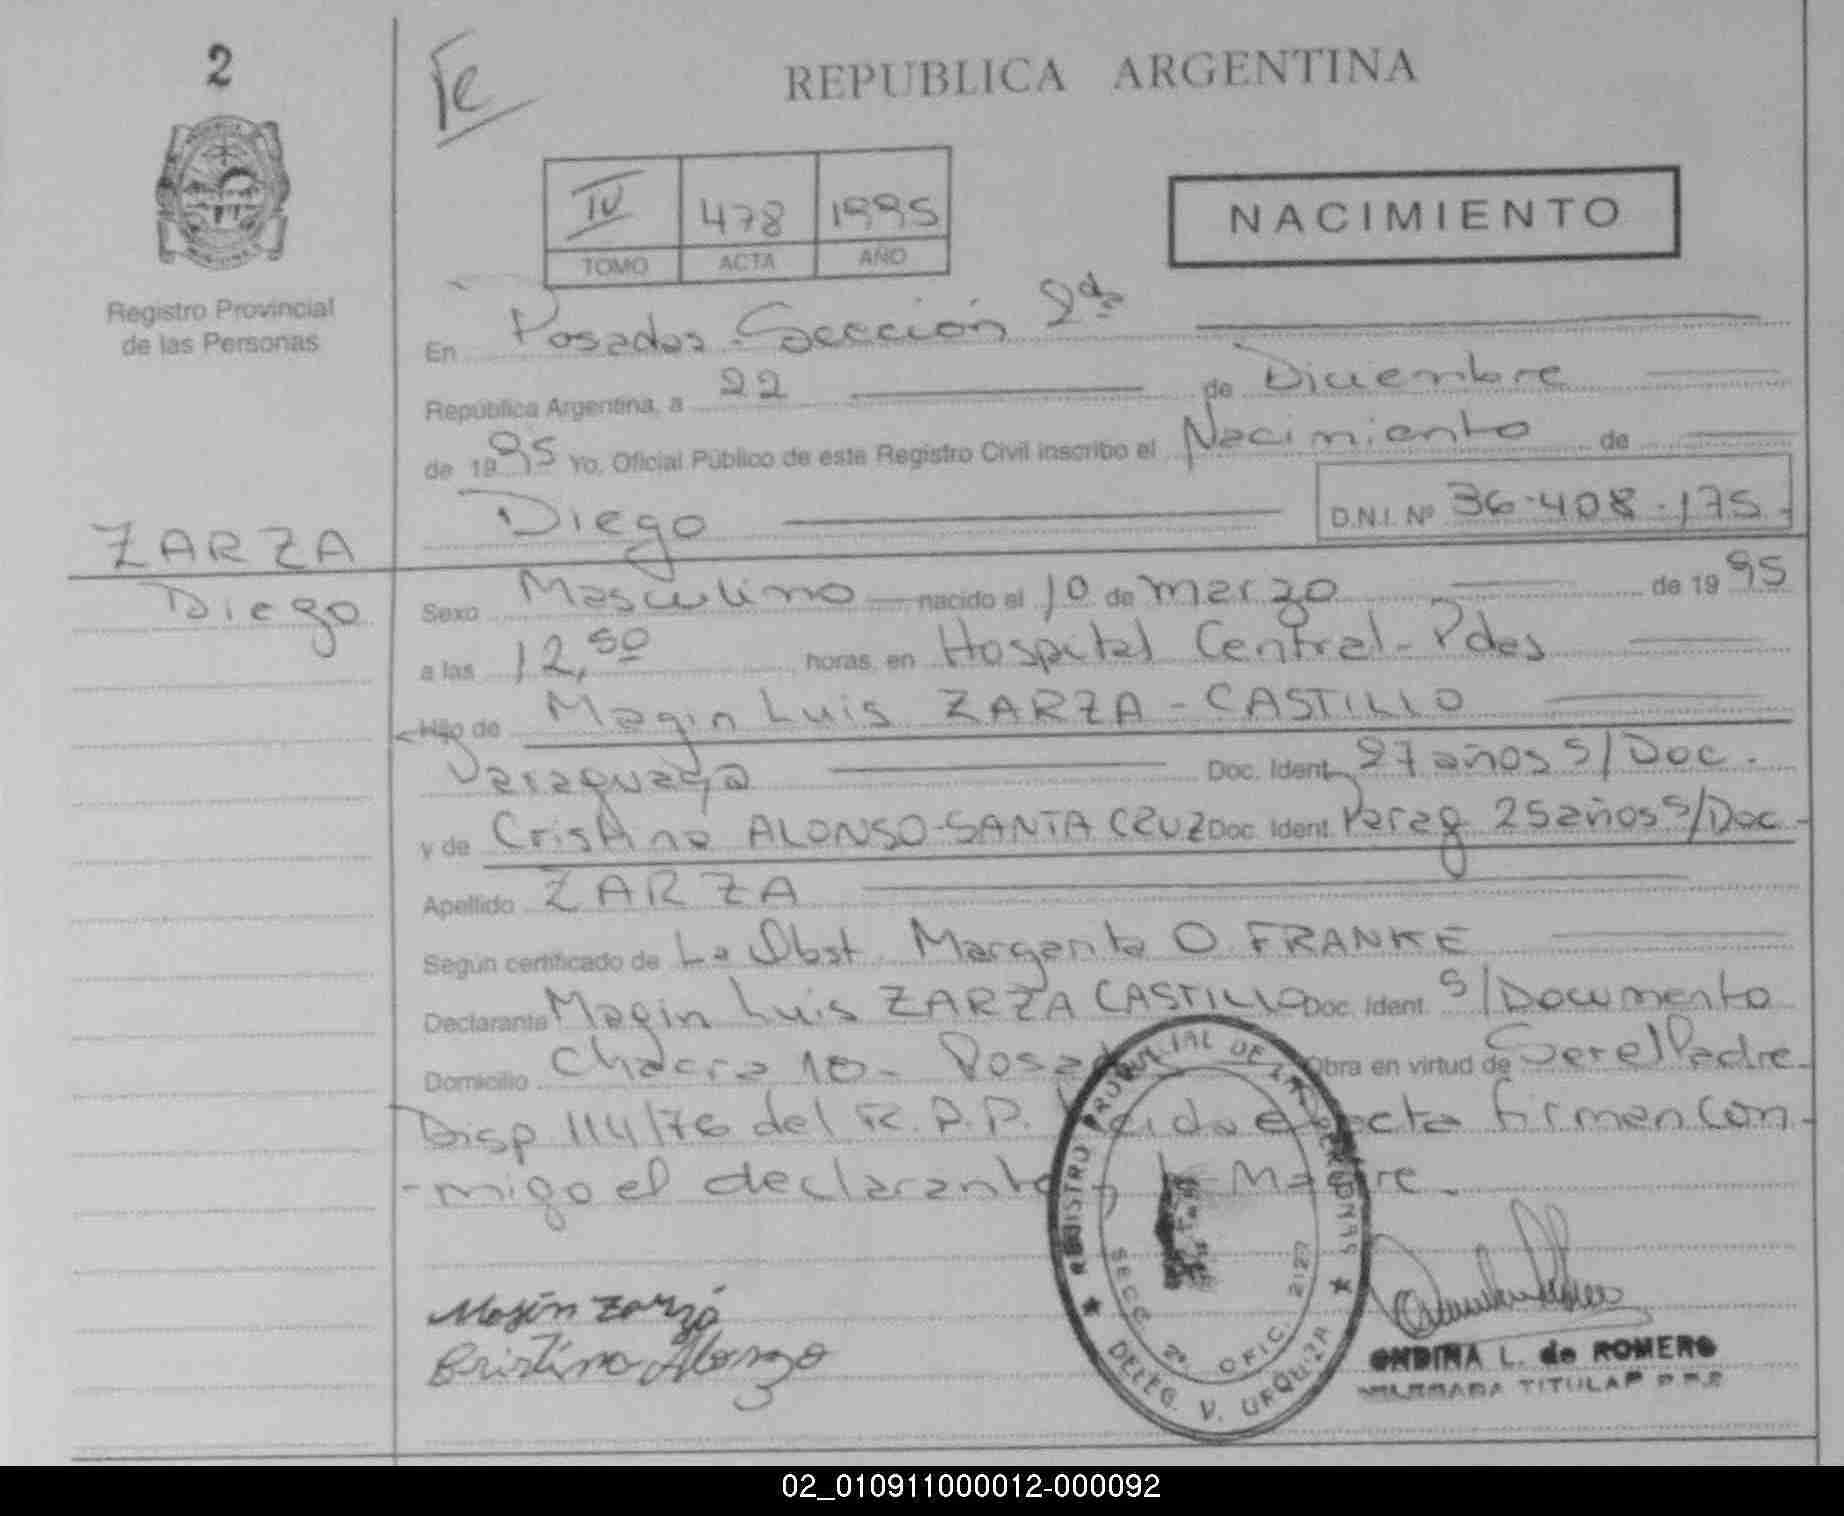 2
Fe
REPUBLICA ARGENTINA
IV 478 1995
TOMO ACTA AÑO
NACIMIENTO
Registro Provincial
de las Personas
En Posadas Sección 2da
República Argentina, a 22 de Diciembre
de 1995 Yo, Oficial Público de este Registro Civil inscribo el Nacimiento de
Diego D.N.I. Nº 36.408.175.-
ZARZA
Diego
Sexo Masculino nacido el 10 de marzo de 1995
a las 12,50 horas, en Hospital Central - Pdas
Hijo de Magin Luis ZARZA - CASTILLO
Paraguaya Doc. Ident. 27 años S/Doc.
y de Cristina ALONSO-SANTA CRUZ Doc. Ident. Parag 25 años S/Doc.-
Apellido ZARZA
Según certificado de La Obst. Margarita O. FRANKE
Declarante Magin Luis ZARZA CASTILLO Doc. Ident. S/Documento
Domicilio Chacra 10 - Posadas Obra en virtud de Ser el Padre-
Disp 114/76 del R.P.P. Leida el acta firman con-
-migo el declarante y la Madre.
Magin Zarza
Cristina Alonzo
REGISTRO PROVINCIAL DE LAS PERSONAS
SECC. 2º OFIC. 2127
DELEG. V. URQUIZA
ONDINA L. de ROMERO
DELEGADA TITULAR R.P.P.
02_010911000012-000092